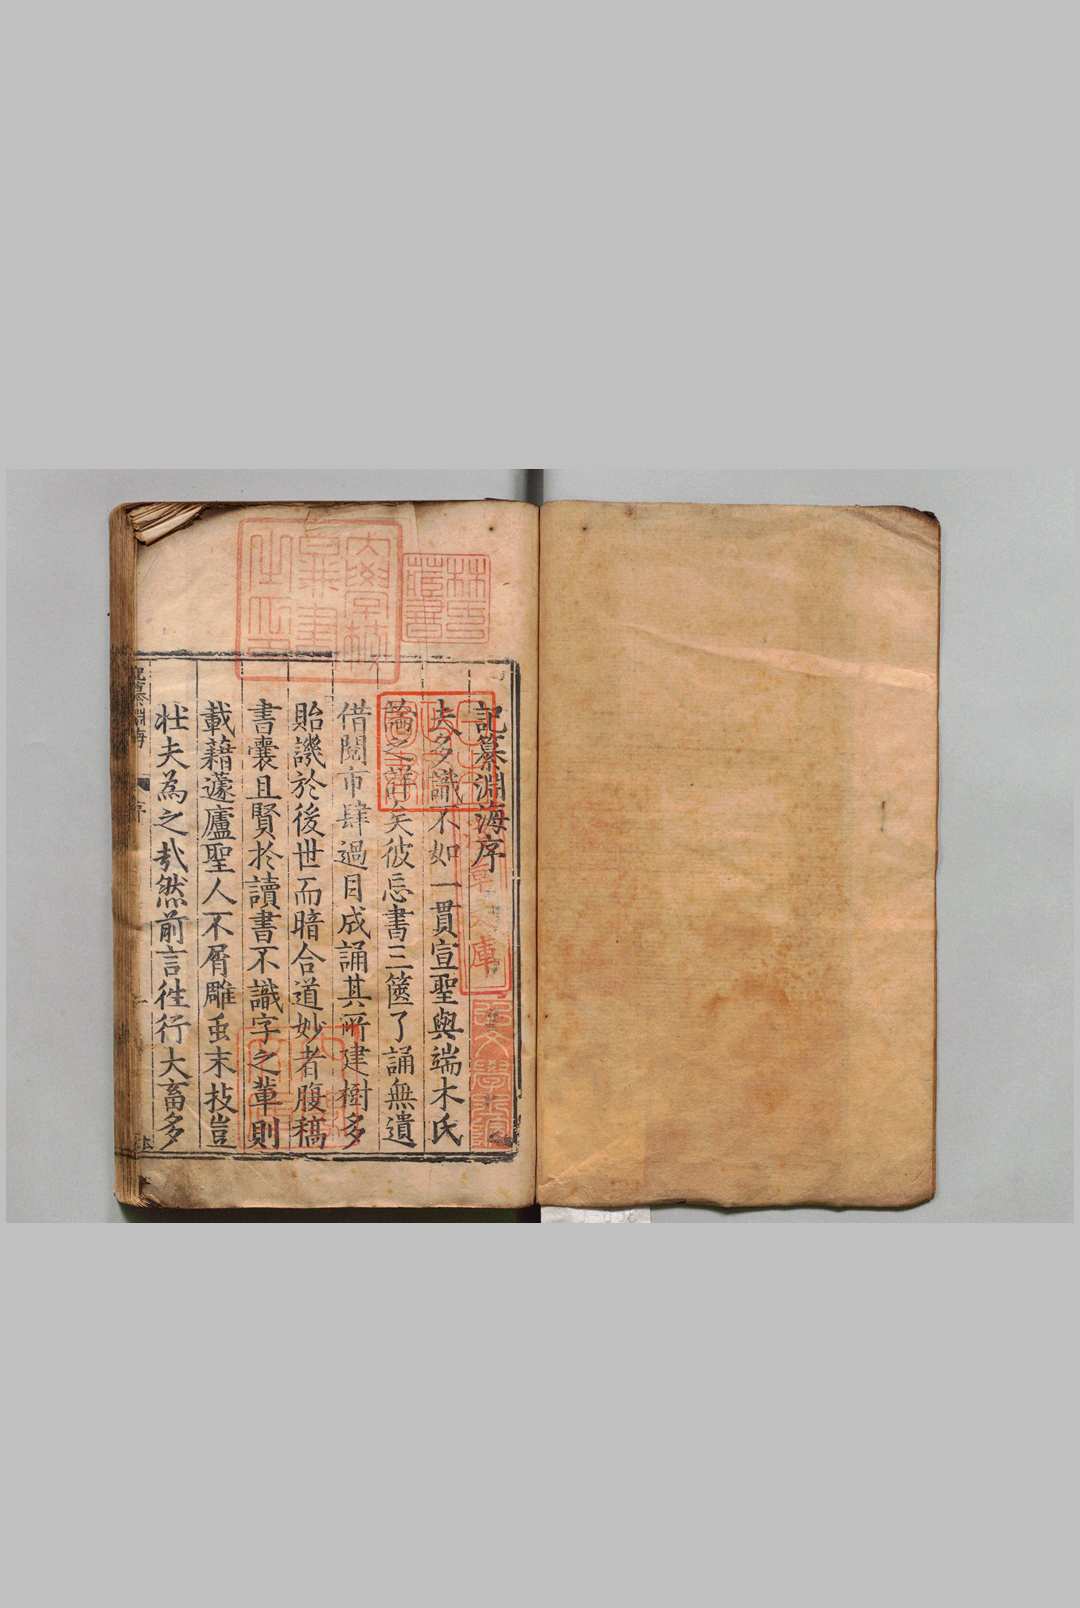 記纂淵海序
夫多識不如一貫宣聖與端木氏
論之詳矣彼忘書三篋了誦無遺
借閱市肆過目成誦其所建樹多
貽譏於後世而暗合道妙者腹稿
書囊且賢於讀書不識字之輩則
載籍蘧廬聖人不屑雕虫末技豈
壯夫為之㢤然前言徃行大畜多
記纂淵海
序
林氏藏書